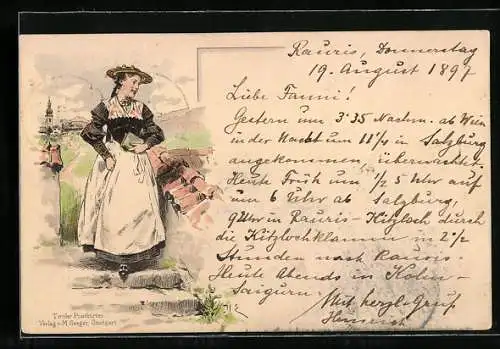 Rauris, Donnerstag
19. August 1897
Liebe Fanni!
Gestern um 3·35 Nachm. ab Wien
in der Nacht um 11 1/4 in Salzburg
angekommen, übernachtet.
Heute Früh um 1/2 5 Uhr auf
um 6 Uhr ab Salzburg,
9 Uhr in Rauris-Kitzloch durch
die Kitzlochklamm in 2 1/2
Stunden nach Rauris.
Heute Abends in Kolm-
Saigurn.
Mit herzl. Gruß
Heinrich
Tiroler Postkarten
Verlag v. M. Seeger, Stuttgart